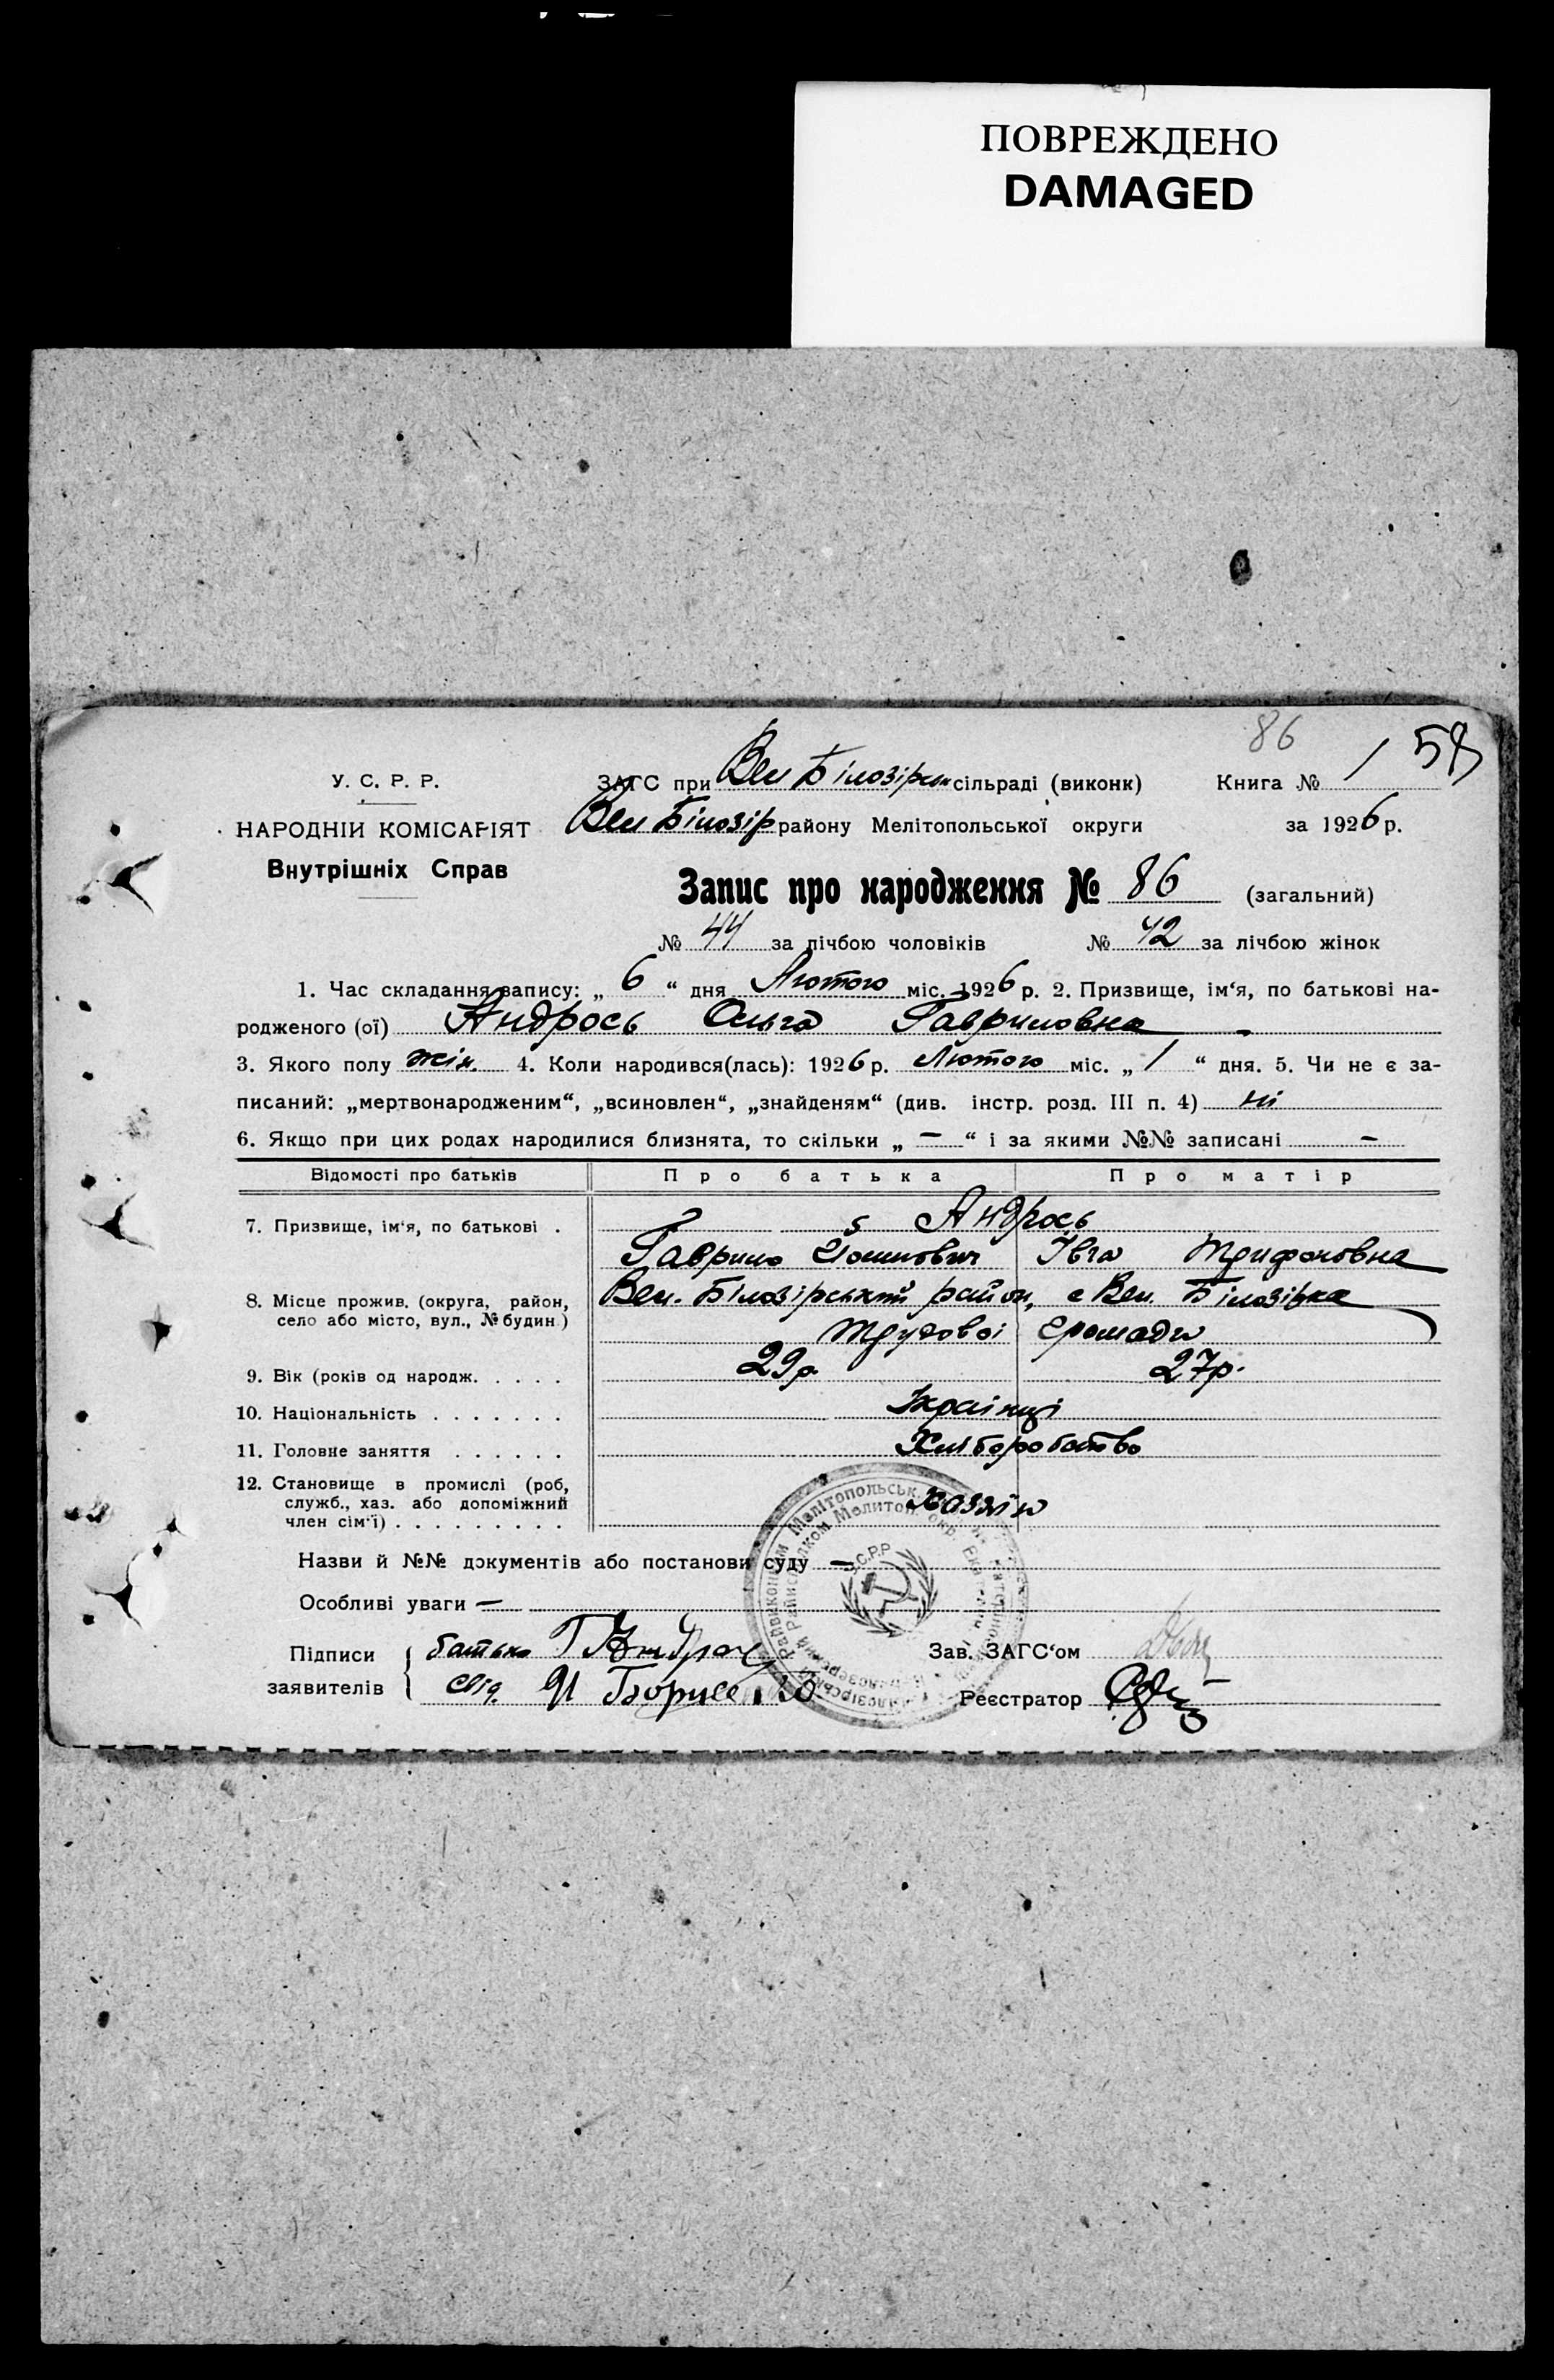 ПОВРЕЖДЕНО
DAMAGED
86
1 58
У. С. Р. Р.
ЗАГС при Вел Білозірськ сільраді (виконк) Книга №
НАРОДНІЙ КОМІСАРІЯТ
Вел Білозір району Мелітопольської округи за 1926 р.
Внутрішніх Справ
Запис про народження № 86 (загальний)
№ 44 за лічбою чоловіків № 42 за лічбою жінок
1. Час складання запису: „ 6 “ дня Лютого міс. 1926 р. 2. Призвище, ім‘я, по батькові на-
родженого (ої) Андрось Ольга Гавриловна
3. Якого полу жін. 4. Коли народився(лась): 1926 р. Лютого міс. „ 1 “ дня. 5. Чи не є за-
писаний: „мертвонародженим“, „всиновлен“, „знайденям“ (див. інстр. розд. III п. 4) ні
6. Якщо при цих родах народилися близнята, то скільки „ — “ і за якими №№ записані —
Відомості про батьків Про батька Про матір
7. Призвище, ім‘я, по батькові . Андрось
Гаврило Івга Трифоновна
8. Місце прожив. (округа, район,
село або місто, вул., № будин.)
Вел. Білозірський район, с Вел. Білозірка
Трудової громади
9. Вік (років од народж. . . . . 29 р. 27 р.
10. Національність . . . . . . . Українці
11. Головне заняття . . . . . . Хліборобство
12. Становище в промислі (роб,
служб., хаз. або допоміжний
член сім‘ї) . . . . . . . . . Хазяїн
Назви й №№ документів або постанови суду —
Особливі уваги —
У.С.Р.Р.
Підписи
заявителів
батько Г Андрос
Зав. ЗАГС‘ом
свід. И
Реєстратор